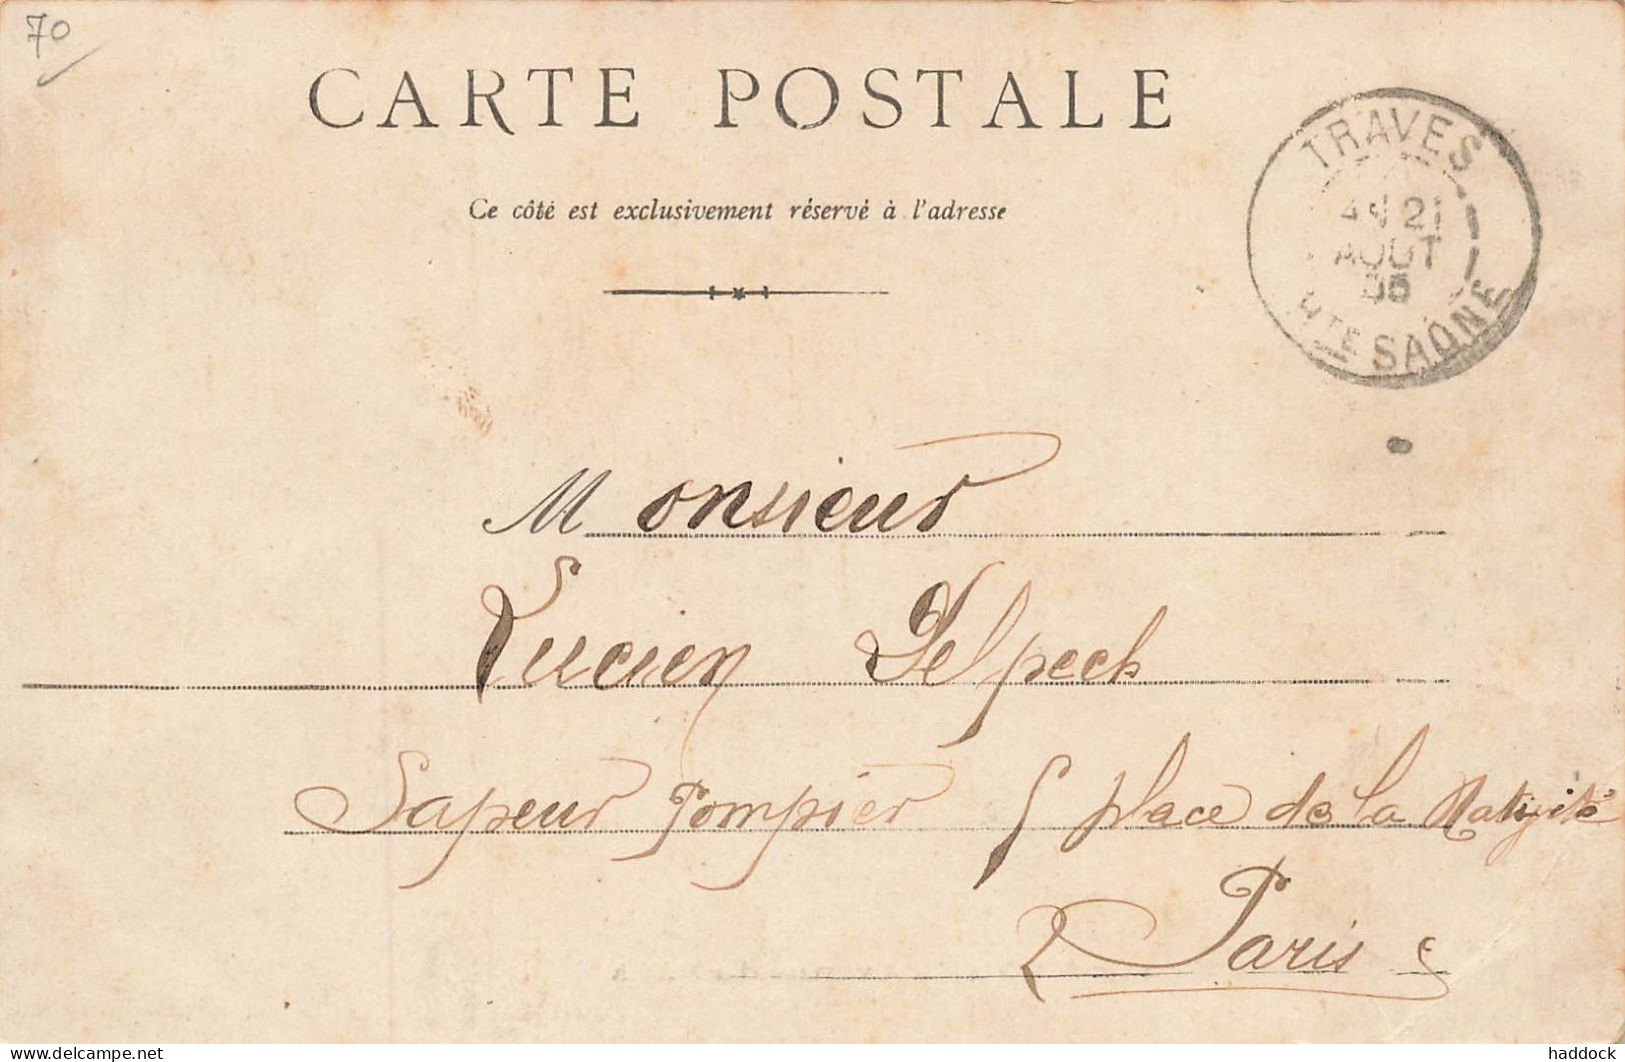 70
CARTE POSTALE
Ce côté est exclusivement réservé à l'adresse
TRAVES
21
AOUT
05
HTE SAÔNE
Monsieur
Lucien Delpech
Sapeur Pompier 5 place de la Nativité
Paris
delcampe.net
haddock